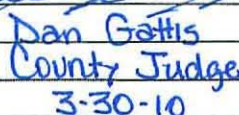 Dan Gattis
County Judge
3-30-10